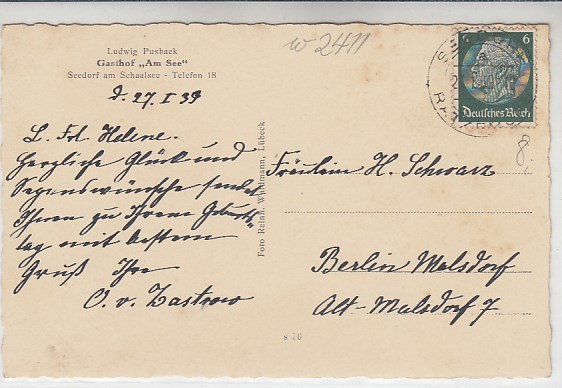 Ludwig Pusback
Gasthof „Am See"
Seedorf am Schaalsee - Telefon 18
w 2411
d. 27. I 39
L. Frl. Helene.
Herzliche Glück und
Segenswünsche sendet
Ihnen zu Ihrem Geburts-
tag mit bestem
Gruß Ihre
O. v. Zastrow
Foto Reinh. Wiedmann, Lübeck
s 16
6
Deutsches Reich
8.
Fräulein H. Schwarz
Berlin Malsdorf
Alt-Malsdorf 7